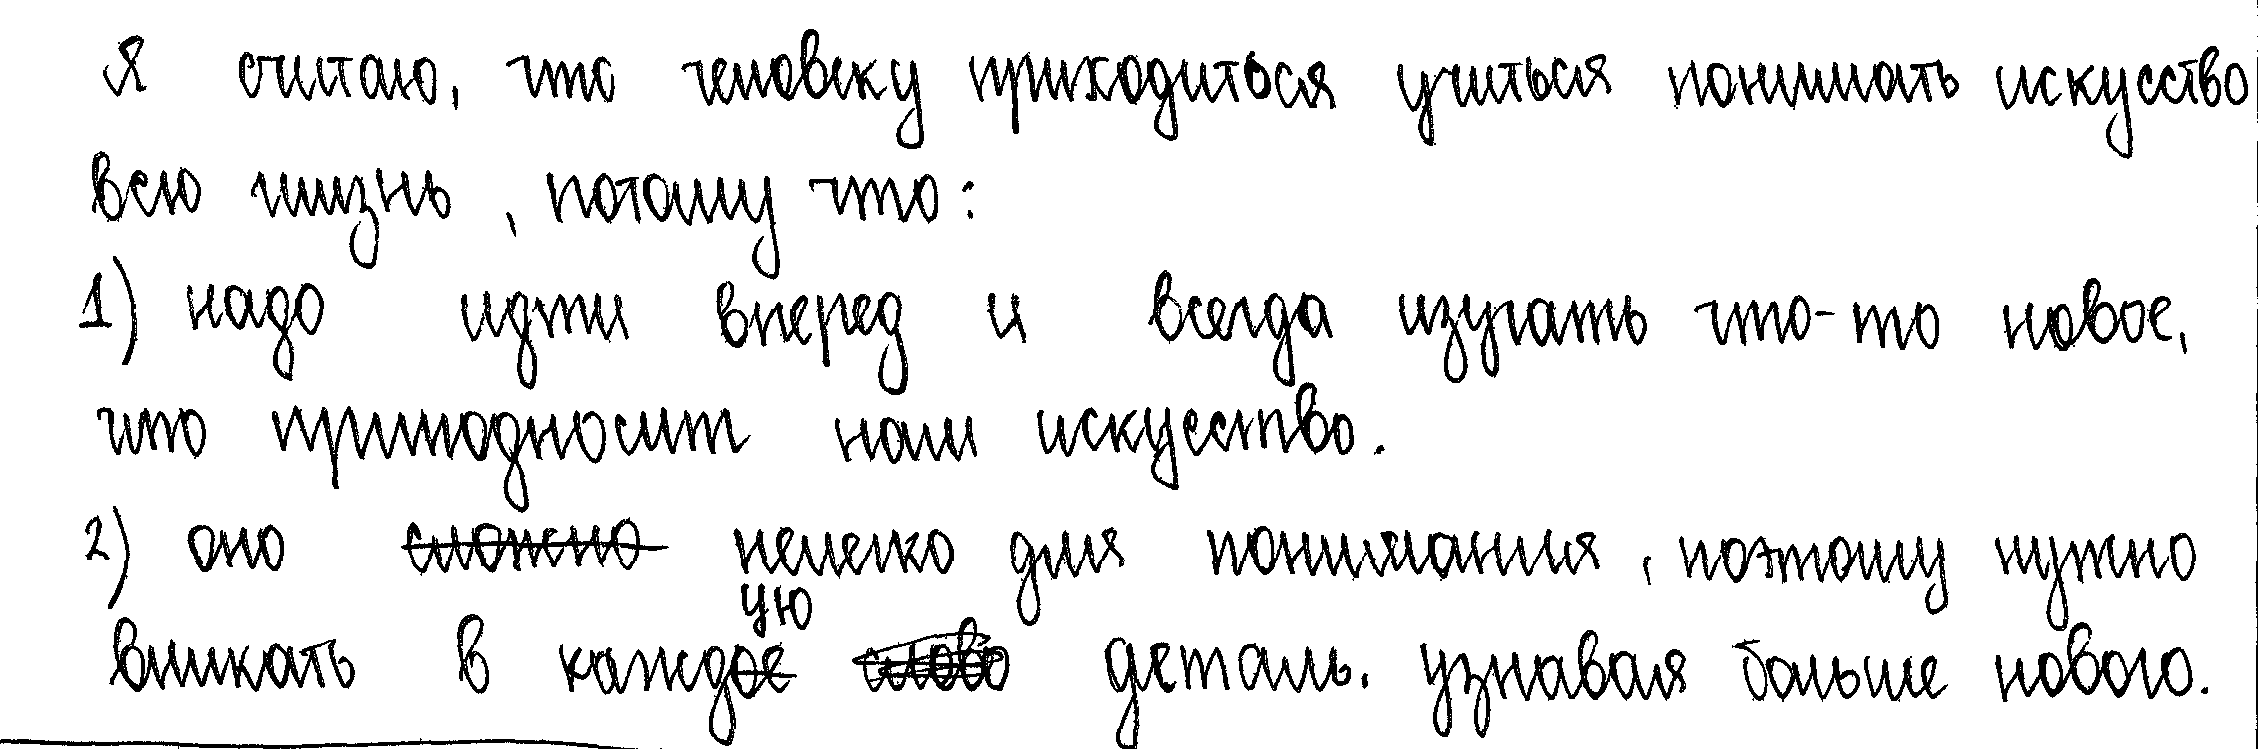 Я считаю, что человеку приходиться учиться понимать искусство
всю жизнь, потому что:
1) надо идти вперед и всегда изучать что-то новое,
что приподносит нам искусство.
2) оно сложно нелегко для понимания, поэтому нужно
вникать в каждую слово деталь. узнавая больше нового.